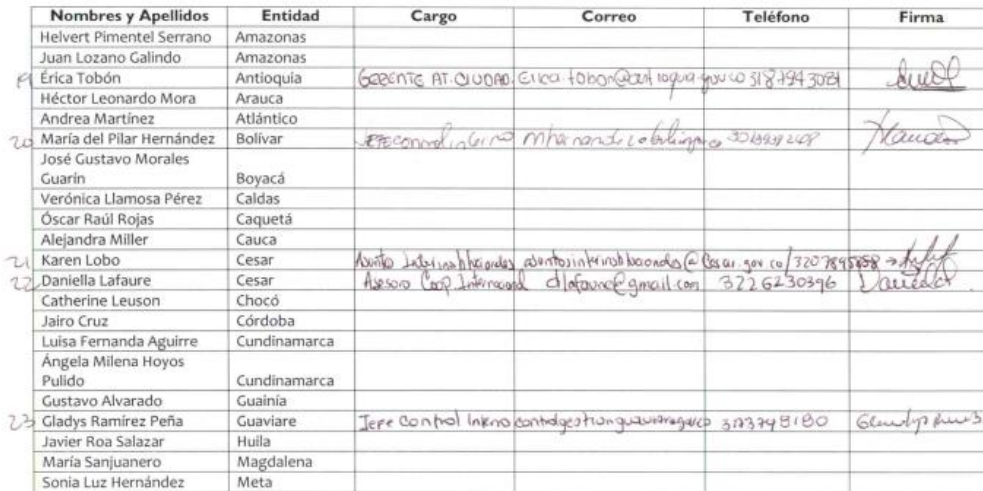 Nombres y Apellidos Entidad Cargo Correo Teléfono Firma
Helvert Pimentel Serrano Amazonas
Juan Lozano Galindo Amazonas
19 Érica Tobón Antioquia GERENTE AT. CIUDAD. Erica.tobon@antioquia.gov.co
Héctor Leonardo Mora Arauca
Andrea Martínez Atlántico
20 María del Pilar Hernández Bolívar JEFE Control interno
José Gustavo Morales
Guarín Boyacá
Verónica Llamosa Pérez Caldas
Óscar Raúl Rojas Caquetá
Alejandra Miller Cauca
21 Karen Lobo Cesar Asuntos Interinstitucionales asuntosinterinstitucionales@cesar.gov.co
22 Daniella Lafaure Cesar Asesora Coop. Internacional dlafaure@gmail.com 3226230396
Catherine Leuson Chocó
Jairo Cruz Córdoba
Luisa Fernanda Aguirre Cundinamarca
Ángela Milena Hoyos
Pulido Cundinamarca
Gustavo Alvarado Guainía
23 Gladys Ramírez Peña Guaviare Jefe Control Interno
Javier Roa Salazar Huila
María Sanjuanero Magdalena
Sonia Luz Hernández Meta